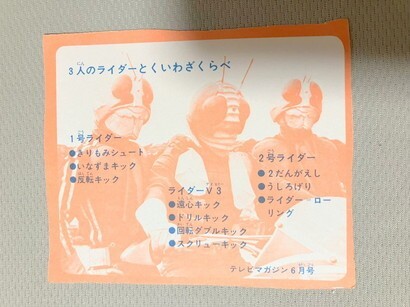 3人のライダーとくいわざくらべ
1号ライダー
●きりもみシュート
●いなずまキック
●反転キック
ライダーV3
●遠心キック
●ドリルキック
●回転ダブルキック
●スクリューキック
2号ライダー
●2だんがえし
●うしろげり
●ライダーローリング
テレビマガジン6月号